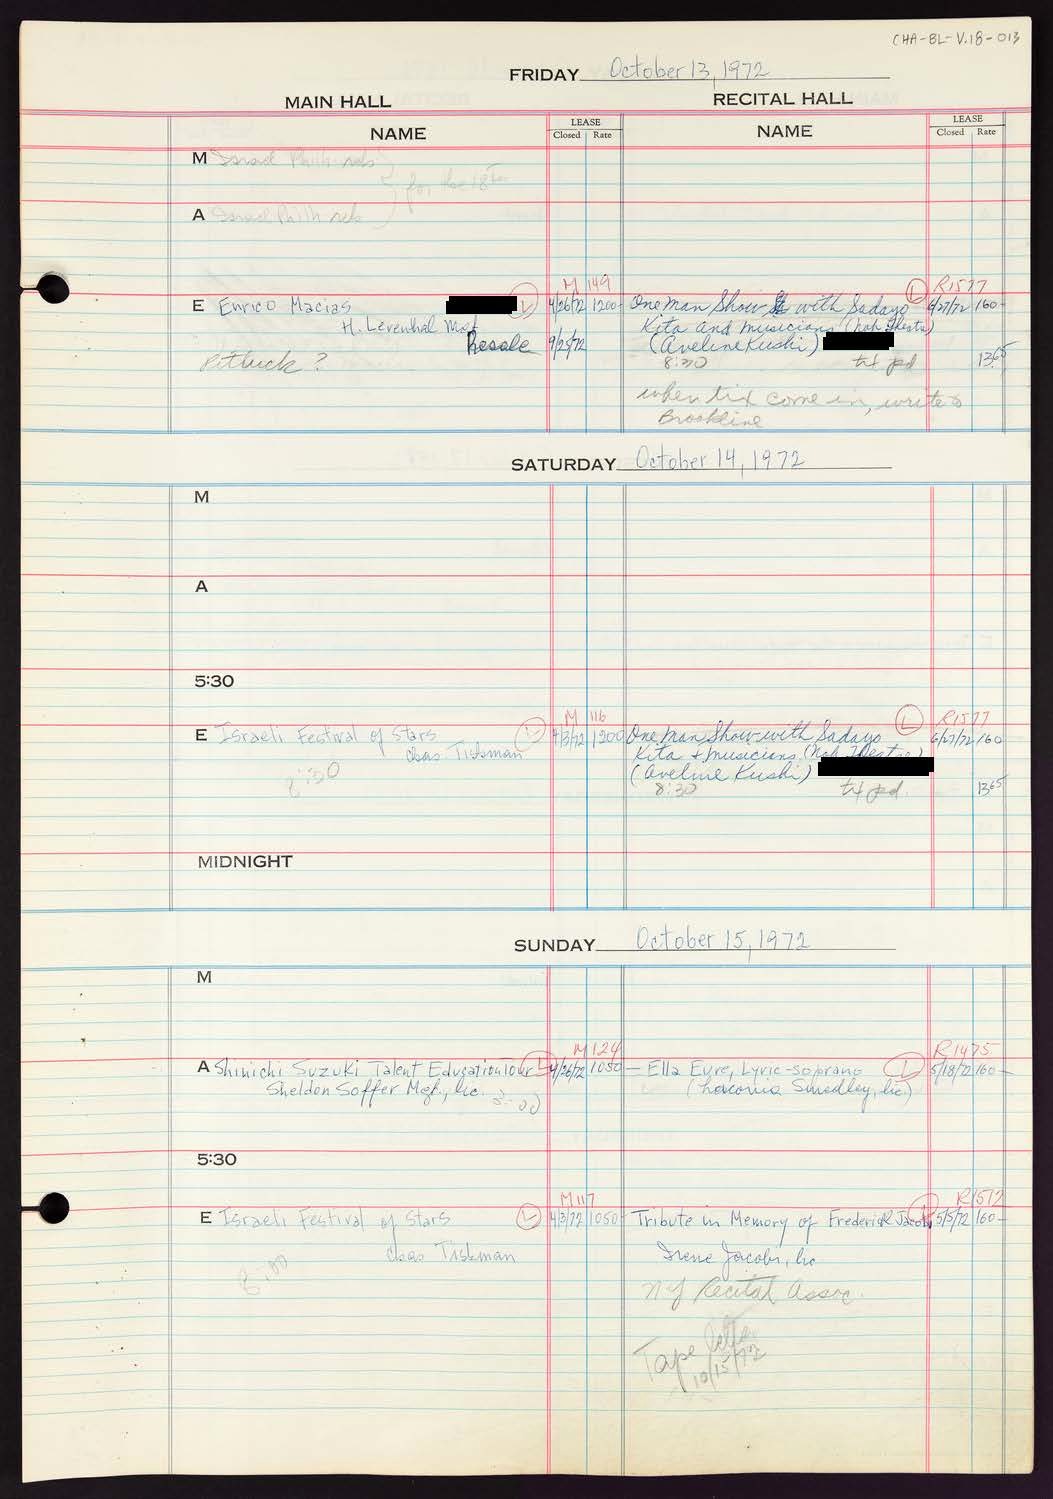 CHA-BL-V.18-013
FRIDAY October 13, 1972
MAIN HALL RECITAL HALL
NAME LEASE Closed Rate NAME LEASE Closed Rate
M Israel Philh. reh
for the 18th
A Israel Philh reh
M 149 R1577
E Enrico Macias L 4/26/72 1200- One Man Show with Sadayo L 6/27/72 160-
H. Levenhal Mgt Kita and musicians (Noh Theatre)
Resale 9/25/72 (Aveline Kushi)
Petluck ? 8:30 tx pd 1365
when tix come in, write to
Brookline
SATURDAY October 14, 1972
M
A
5:30
M 116 R1577
E Israeli Festival of Stars L 4/3/72 1200 One Man Show with Sadayo L 6/27/72 160
Chas. Tiskman Kita + musicians (Noh Theatre)
8:30 (Aveline Kushi)
8:30 tx pd. 1365
MIDNIGHT
SUNDAY October 15, 1972
M
M 124 R1475
A Shinichi Suzuki Talent Education Tour L 4/26/72 1050- Ella Eure, Lyric-soprano L 5/18/72 160-
Sheldon Soffer Mgt., lic. 3:00 (Laconia Smedley, lic.)
5:30
M117 R1512
E Israeli Festival of Stars L 4/3/72 1050- Tribute in Memory of Frederick R Jacobi L 5/5/72 160-
Chas Tiskman Irene Jacobi, lic
8:00 NY Recital Assoc.
Tape
10/15/72